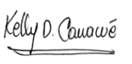 Kelly D. Canawé